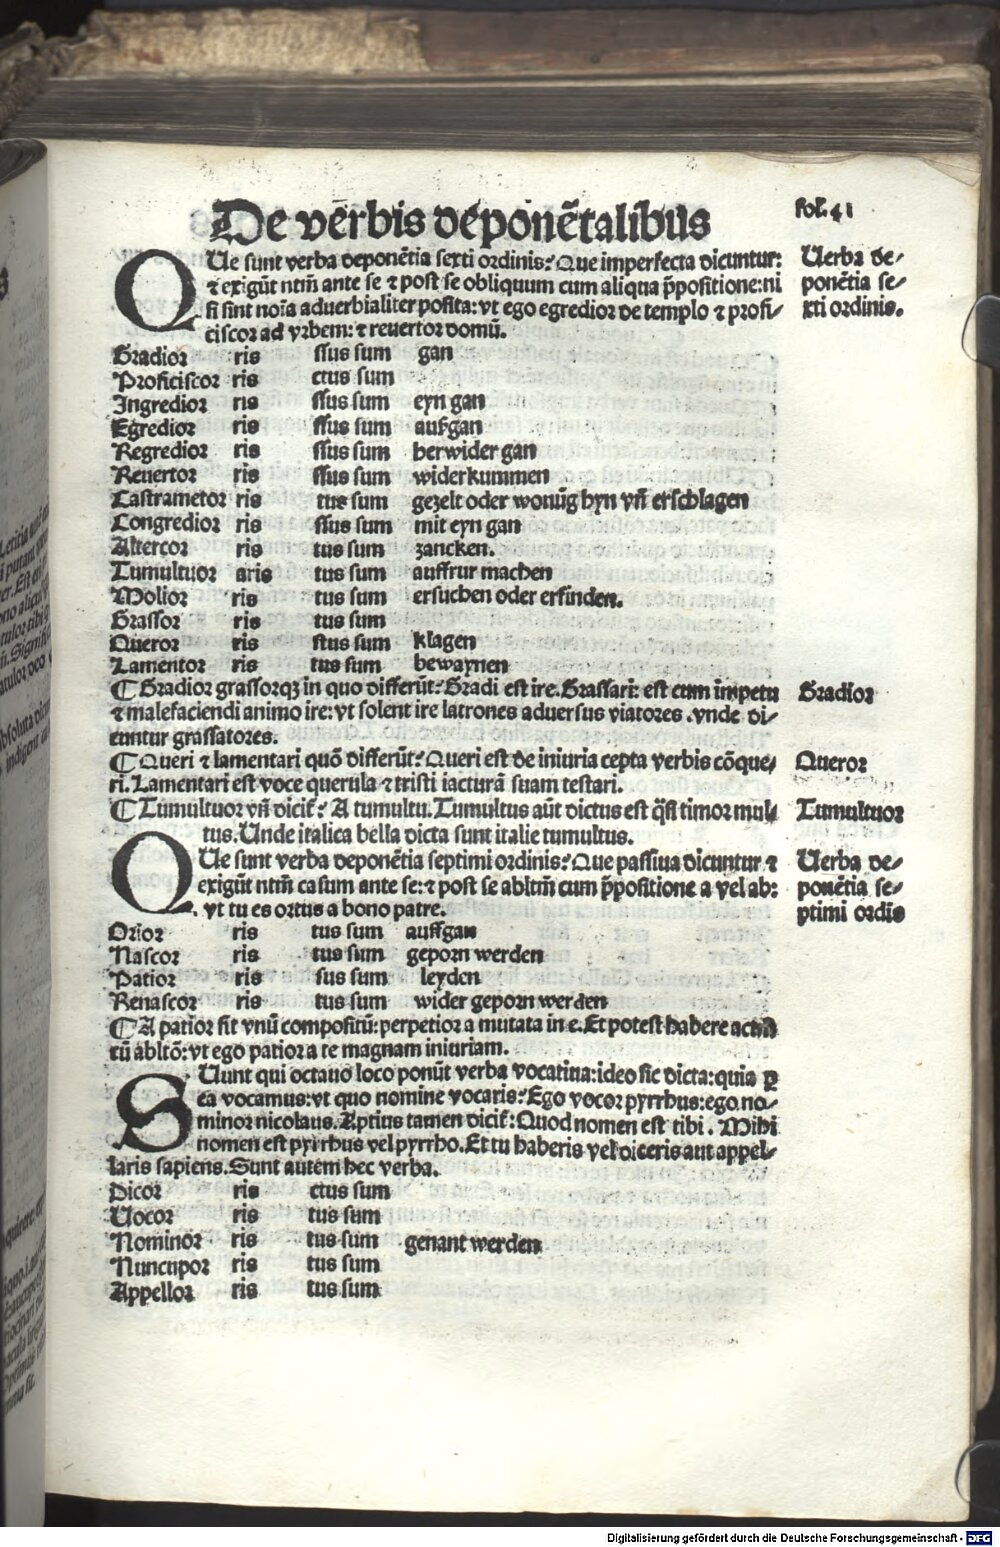 De verbis deponētalibus
fol. 41
QUe sunt verba deponētia sexti ordinis? Que imperfecta dicuntur:
⁊ exigūt ntm̄ ante se ⁊ post se obliquum cum aliqua p̄positione: ni
si sint noīa aduerbialiter posita: vt ego egredior de templo ⁊ profi⸗
ciscor ad vrbem: ⁊ reuertor domū.
Uerba de⸗
ponētia se⸗
xti ordinis.
Gradior ris ssus sum gan
Proficiscor ris ctus sum
Ingredior ris ssus sum eyn gan
Egredior ris ssus sum aufgan
Regredior ris ssus sum herwider gan
Reuertor ris ssus sum widerkummen
Castrametor ris tus sum gezelt oder wonūg hyn vn̄ erschlagen
Congredior ris ssus sum mit eyn gan
Altercor ris tus sum zancken.
Tumultuor aris tus sum auffrur machen
Molior ris tus sum ersuchen oder erfinden.
Grassor ris tus sum
Queror ris stus sum klagen
Lamentor ris tus sum bewaynen
¶ Gradior grassorqȝ in quo differūt? Gradi est ire. Grassari: est cum impetu
⁊ malefaciendi animo ire: vt solent ire latrones aduersus viatores. vnde di⸗
cuntur grassatores.
Gradior
¶ Queri ⁊ lamentari quō differūt? Queri est de iniuria cepta verbis cōque⸗
ri. Lamentari est voce querula ⁊ tristi iacturā suam testari.
Queror
¶ Tumultuor vn̄ dicit̄? A tumultu. Tumultus aūt dictus est q̄si timor mul
tus. Unde italica bella dicta sunt italie tumultus.
Tumultuor
QUe sunt verba deponētia septimi ordinis? Que passiua dicuntur ⁊
exigūt ntm̄ casum ante se: ⁊ post se abltm̄ cum p̄positione a vel ab:
vt tu es ortus a bono patre.
Uerba de⸗
ponētia se⸗
ptimi ordis
Orior ris tus sum auffgan
Nascor ris tus sum geporn werden
Patior ris sus sum leyden
Renascor ris tus sum wider geporn werden
¶ A patior fit vnū compositū: perpetior a mutata in e. Et potest habere
tū abltō: vt ego patior a te magnam iniuriam.
SUunt qui octauo loco ponūt verba vocatiua: ideo sic dicta: quia ꝑ
ea vocamus: vt quo nomine vocaris? Ego vocor pyrrhus: ego no⸗
minor nicolaus. Aptius tamen dicit̄: Quod nomen est tibi. Mihi
nomen est pyrrhus vel pyrrho. Et tu haberis vel diceris aut appel⸗
laris sapiens. Sunt autem hec verba.
Dicor ris ctus sum
Uocor ris tus sum
Nominor ris tus sum genant werden
Nuncupor ris tus sum
Appellor ris tus sum
Digitalisierung gefördert durch die Deutsche Forschungsgemeinschaft - DFG